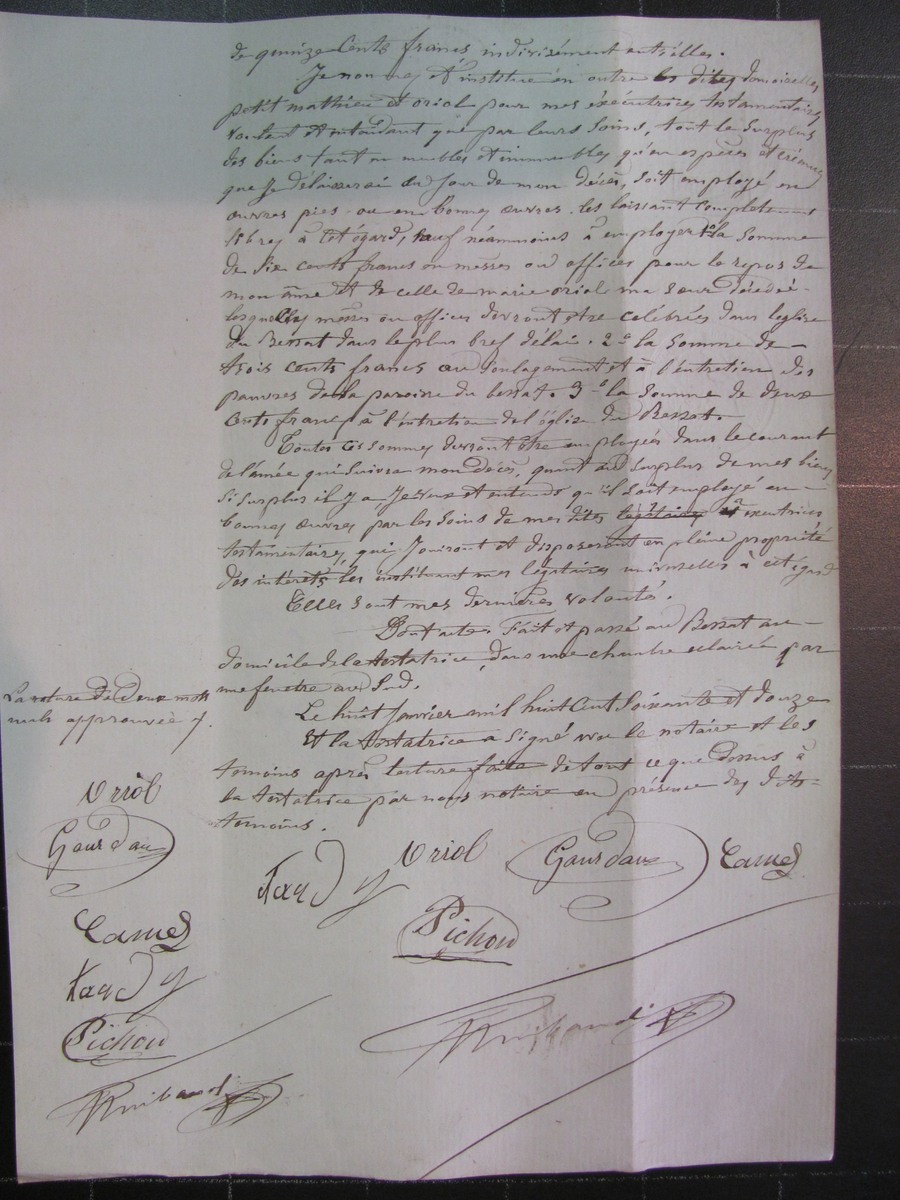 de quinze cents francs indivisément entr'elles.
Je nomme et institue en outre les dites demoiselles
petit mathieu et oriol pour mes exécutrices testamentaires
voulant et entendant que par leurs soins, tout le surplus
des biens tant en meubles et immeubles qu'en espèces et créances
que je délaisserai au jour de mon décès, soit employé en
œuvres pies ou en bonnes œuvres. les laissant complètement
libres à cet égard, sauf néanmoins à employer 1º la somme
de six cents francs en messes ou offices pour le repos de
mon âme et de celle de marie oriol ma sœur décédée
lesquelles messes ou offices devront être célébrées dans l'église
du Bessat dans le plus bref délai. 2º la somme de
trois cents francs au soulagement et à l'entretien des
pauvres de la paroisse du bessat. 3º la somme de deux
cents francs à l'entretien de l'église du Bessat.
Toutes ces sommes devront être employées dans le courant
de l'année qui suivra mon décès, quant au surplus de mes biens
si surplus il y a, je veux et entends qu'il soit employé en
bonnes œuvres par les soins de mes dites légataires et exécutrices
testamentaires, qui jouiront et disposeront en pleine propriété
des intérêts, les instituant mes légataires universelles à cet égard
Telles sont mes dernières volontés.
Dont acte. Fait et passé au Bessat au
domicile de la testatrice, dans une chambre eclairée par
une fenêtre au Sud.
Le huit Janvier mil huit cent soixante et douze
Et la testatrice a signé avec le notaire et les
temoins après lecture faite de tout ce que dessus à
la testatrice par nous notaire en présence des dits
temoins.
La rature de deux mots
nuls approuvée
Oriol
Gourdan
Tardy
Oriol
Gourdan
Pichon
Tardy
Pichon